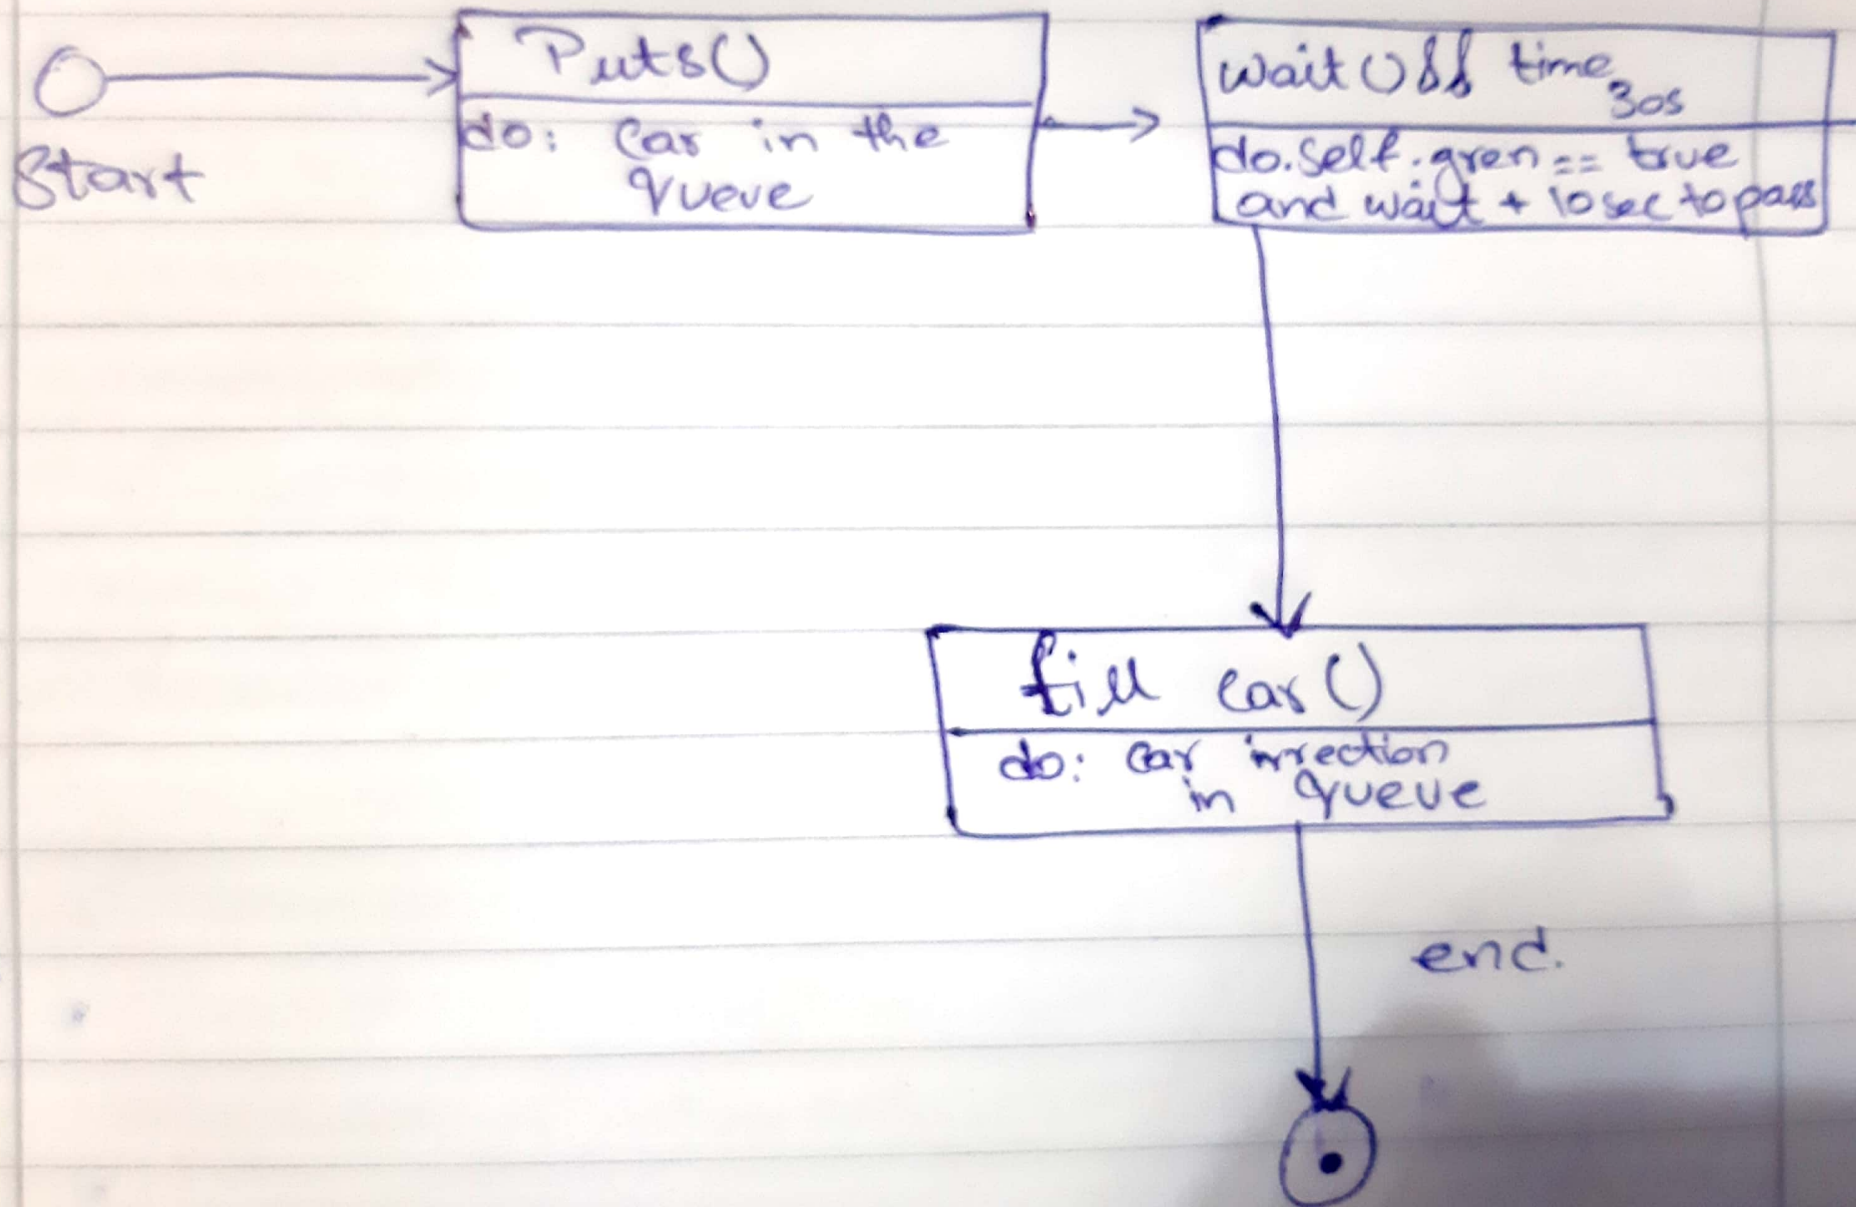 Start
Puts()
do: Car in the
queue
wait Off time
30s
do.self.gren == true
and wait + 10 sec to pass
fill car()
do: car
in queue
end.